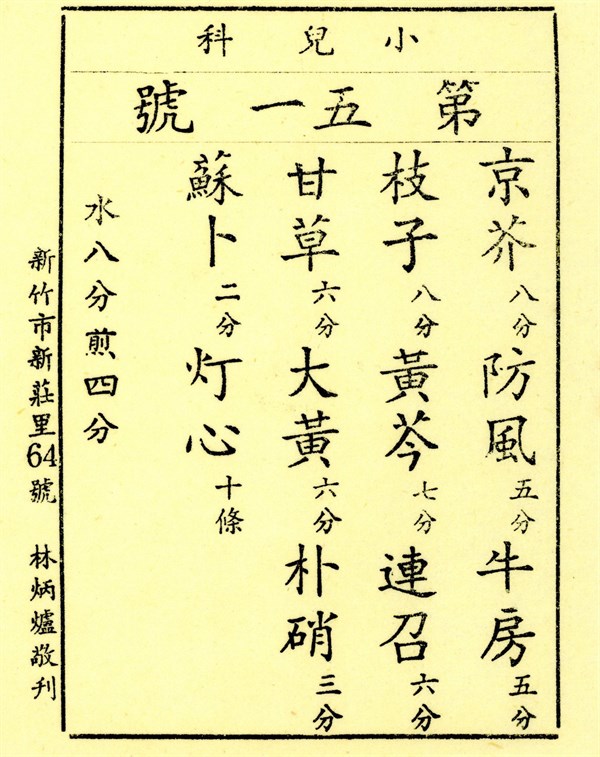 小兒科
第五一號
京芥八分防風五分牛房五分
枝子八分黃芩七分連召六分
甘草六分大黃六分朴硝三分
蘇卜二分灯心十條
水八分煎四分
新竹市新莊里64號 林炳爐敬刊